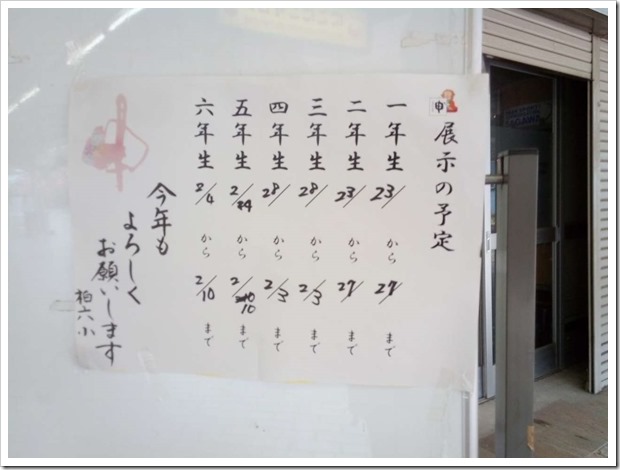 申
展示の予定
一年生 23/ から 27/ まで
二年生 23/ から 27/ まで
三年生 28/ から 2/3 まで
四年生 28/ から 2/3 まで
五年生 2/4 から 2/10 まで
六年生 2/4 から 2/10 まで
申
今年も
よろしく
お願いします
柏六小